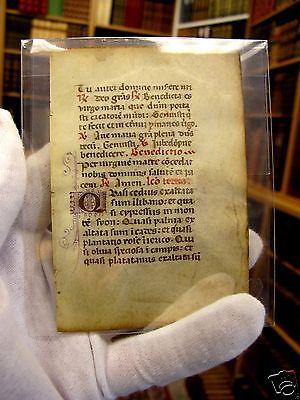 Tu autem domine misere nr̄i
℟ Deo grās ℟ Benedicta es
virgo maria que dnm̄ porta
sti creatorē mūdi: Genuisti
te fecit et in eternū ꝑmanes virgo.
℣ Aue maria gratia plena dn̄s
tecū. Genuisti. ℣ Jube dōpne
benedicere. Benedictio.
Per virginē matrē cōcedat
nobis dominus salutē et pa
cem ℟ Amen. lc̄o terna
Quasi cedrus exaltata
sum i libano: et quasi
cypressus in mōte
syon: Quasi palma ex
altata sum i cades: et quasi
plantatio rose i erico: Quasi
oliua speciosa i campis: et
quasi platanus exaltata sū